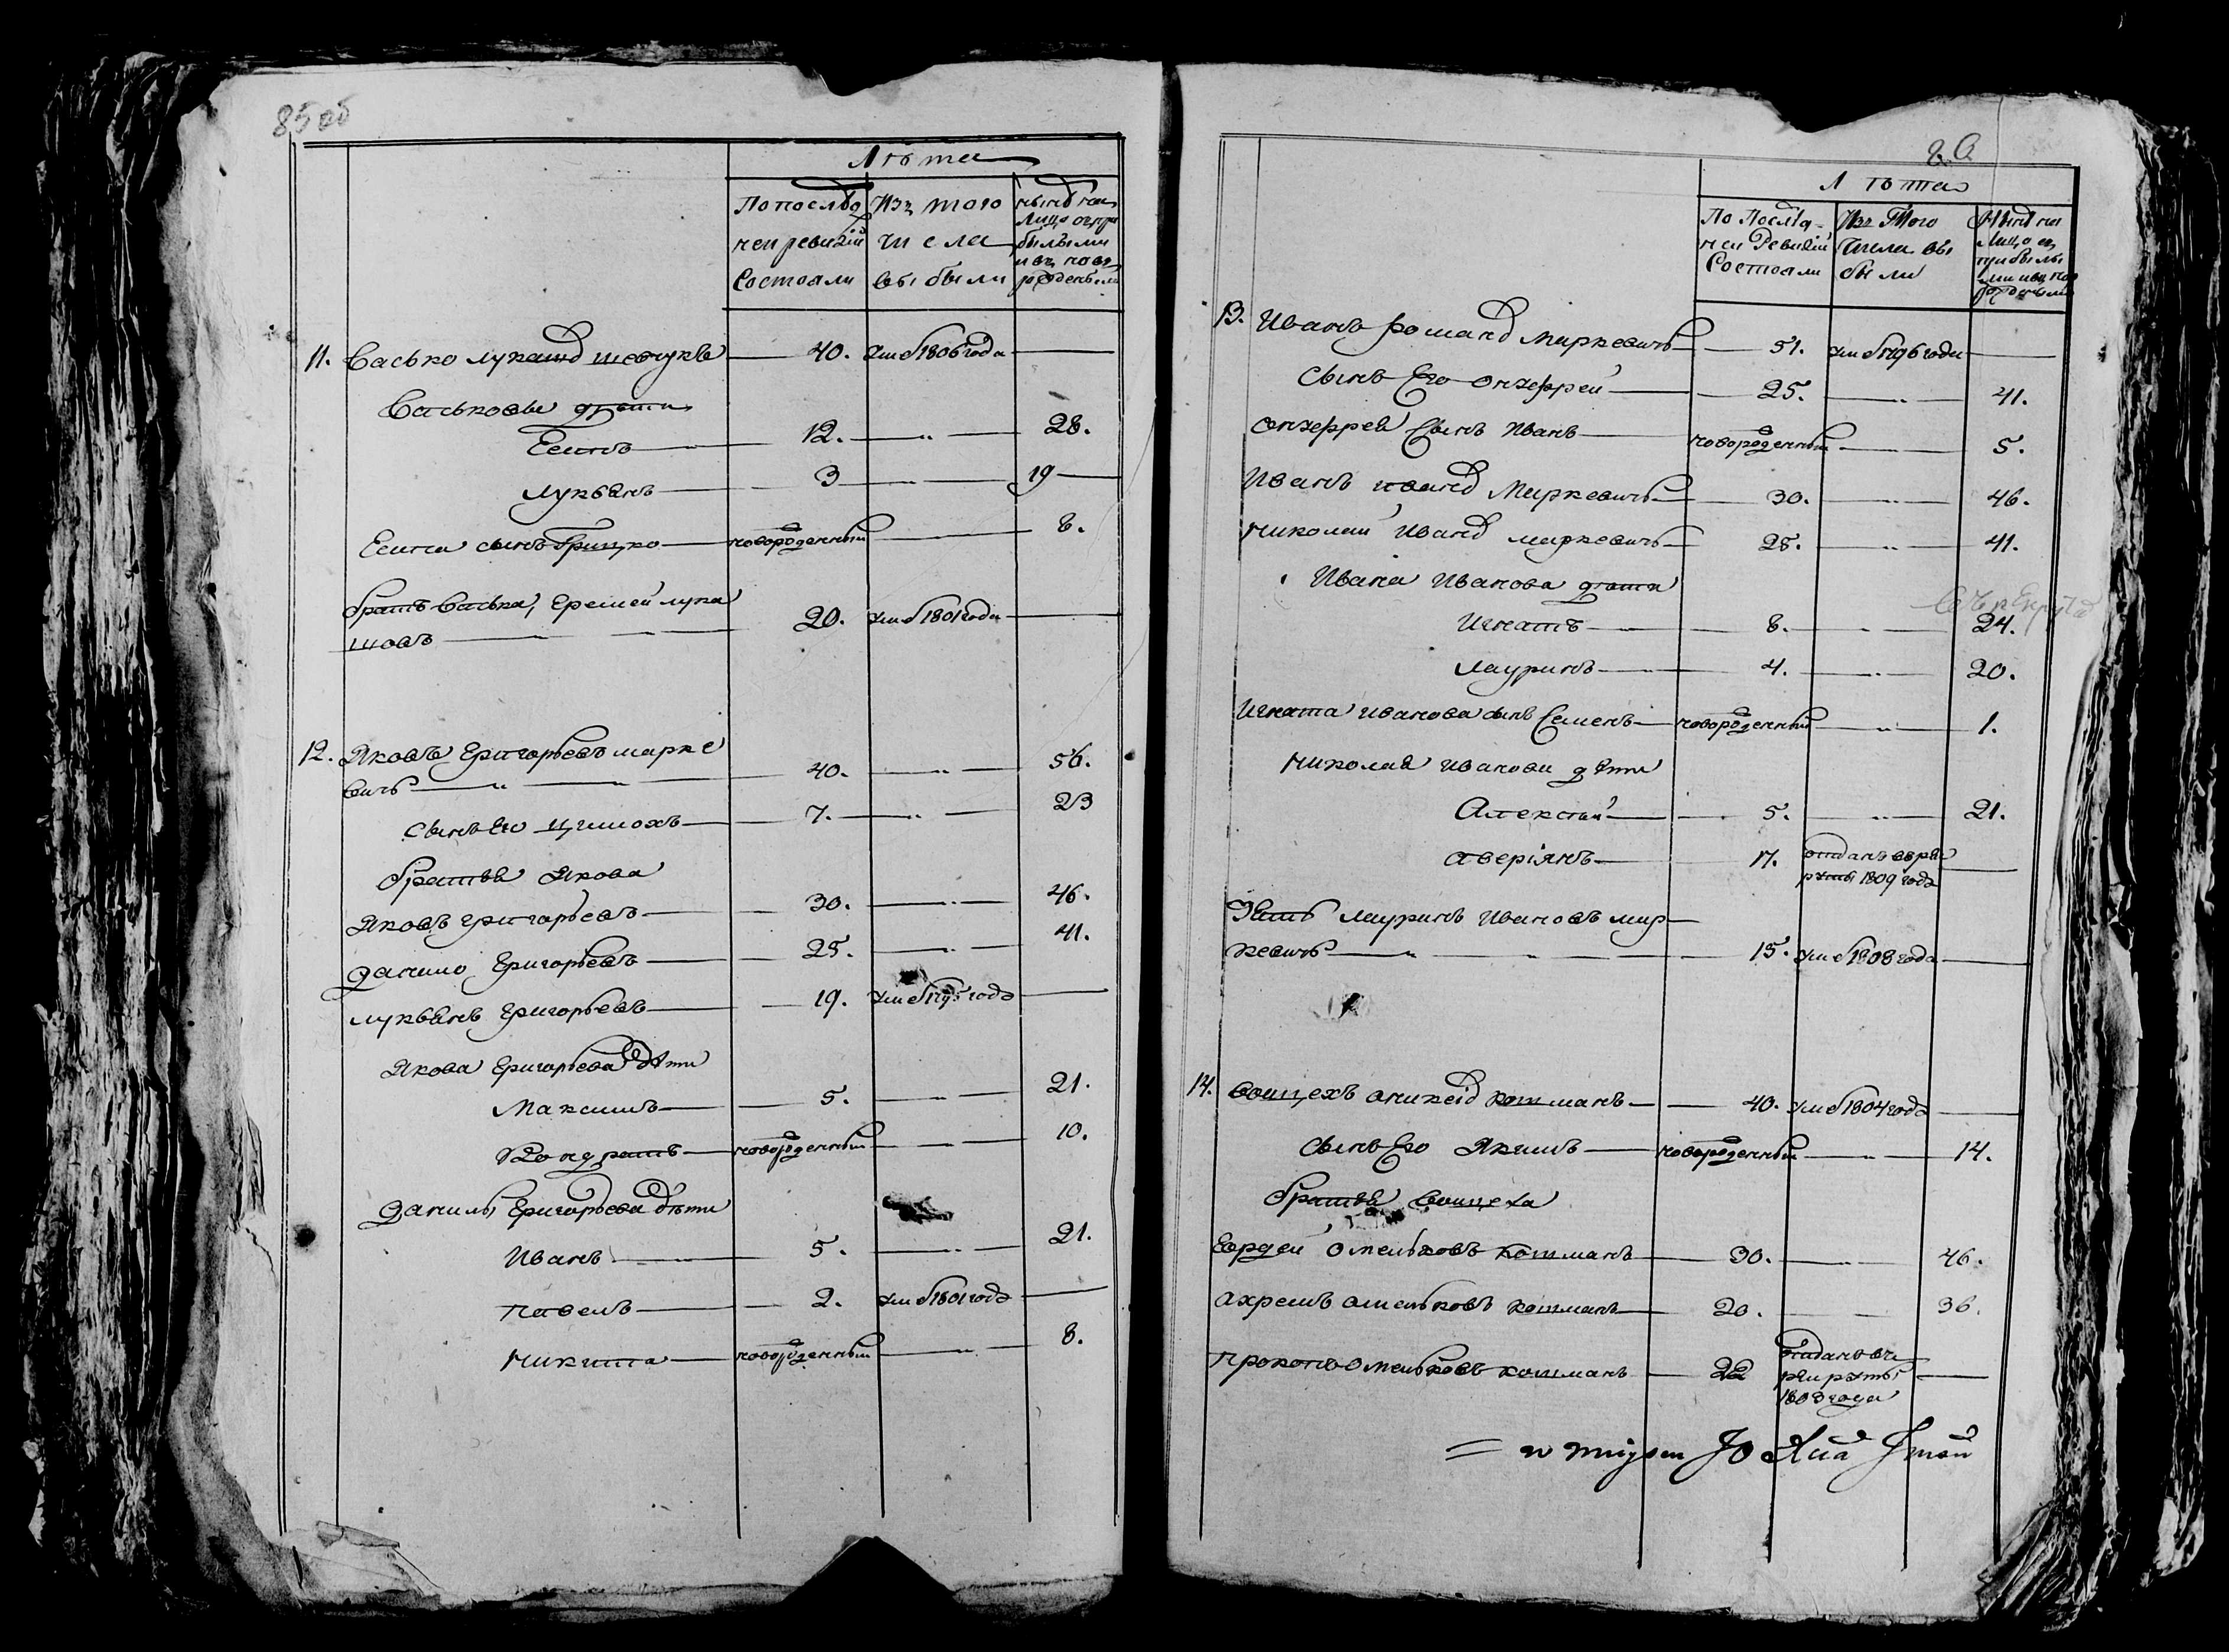 85 об
Лѣта
По послѣд Изъ того нынѣ на
ней ревизіи числа лицо съ при
былыми
состояли выбыли и въ новъ
рожденными
11. Васько Лукашов Шевчукъ 40. умеръ 1806 года
Васьковы дѣти
Есипъ 12. 28.
Лукьянъ 3 19
Есипа сынъ Грицко новорожденный 8.
братъ Васька, Еремей Лука
шовъ 20. умеръ 1801 года
12. Яковъ Григорьевъ Марке
вичъ 40. 56.
сынъ Его Цимохъ 7. 23
братья Якова
Яковъ Григорьевъ 30. 46.
Данило Григорьевъ 25. 41.
Лукьянъ Григорьевъ 19. умеръ 1795 года
Якова Григорьева дѣти
Максимъ 5. 21.
Кондратъ новорожденный 10.
Данилы Григорьева дѣти
Иванъ 5. 21.
Павелъ 2. умеръ 1801 года
Никита новорожденный 8.
Лѣта
По Послѣд- Изъ Того Нынѣ на
ней Ревизіи числа вы лицо съ
Состояли были прибылы
ми и въ нов
рожденными
13. Иванъ Романов Маркевичъ 51. умеръ 1796 года
Сынъ Его Онуфрей 25. 41.
Онуфрея Сынъ Иванъ новорожденный 5.
Иванъ Иванов Маркевичъ 30. 46.
Николай Иванов Маркевичъ 25. 41.
Ивана Иванова дѣти
Игнатъ 8. 24.
Лауринъ 4. 20.
Игната Иванова сынъ Семенъ новорожденный 1.
Николая Иванова дѣти
Алексѣй 5. 21.
Аверіянъ 17. отданъ въ рек
руты 1809 года
Лауринъ Ивановъ Мар
кевичъ 15. умеръ 1808 года
14. Войцехъ Котманъ 40. умеръ 1804 года
Сынъ Его Якимъ новорожденный 14.
братья Войцеха
Гордей Омельковъ Котманъ 30. 46.
Ахремъ Омельковъ Котманъ 20. 36.
Прокопъ Омельковъ Котманъ 22 отданъ въ
рекруты
года